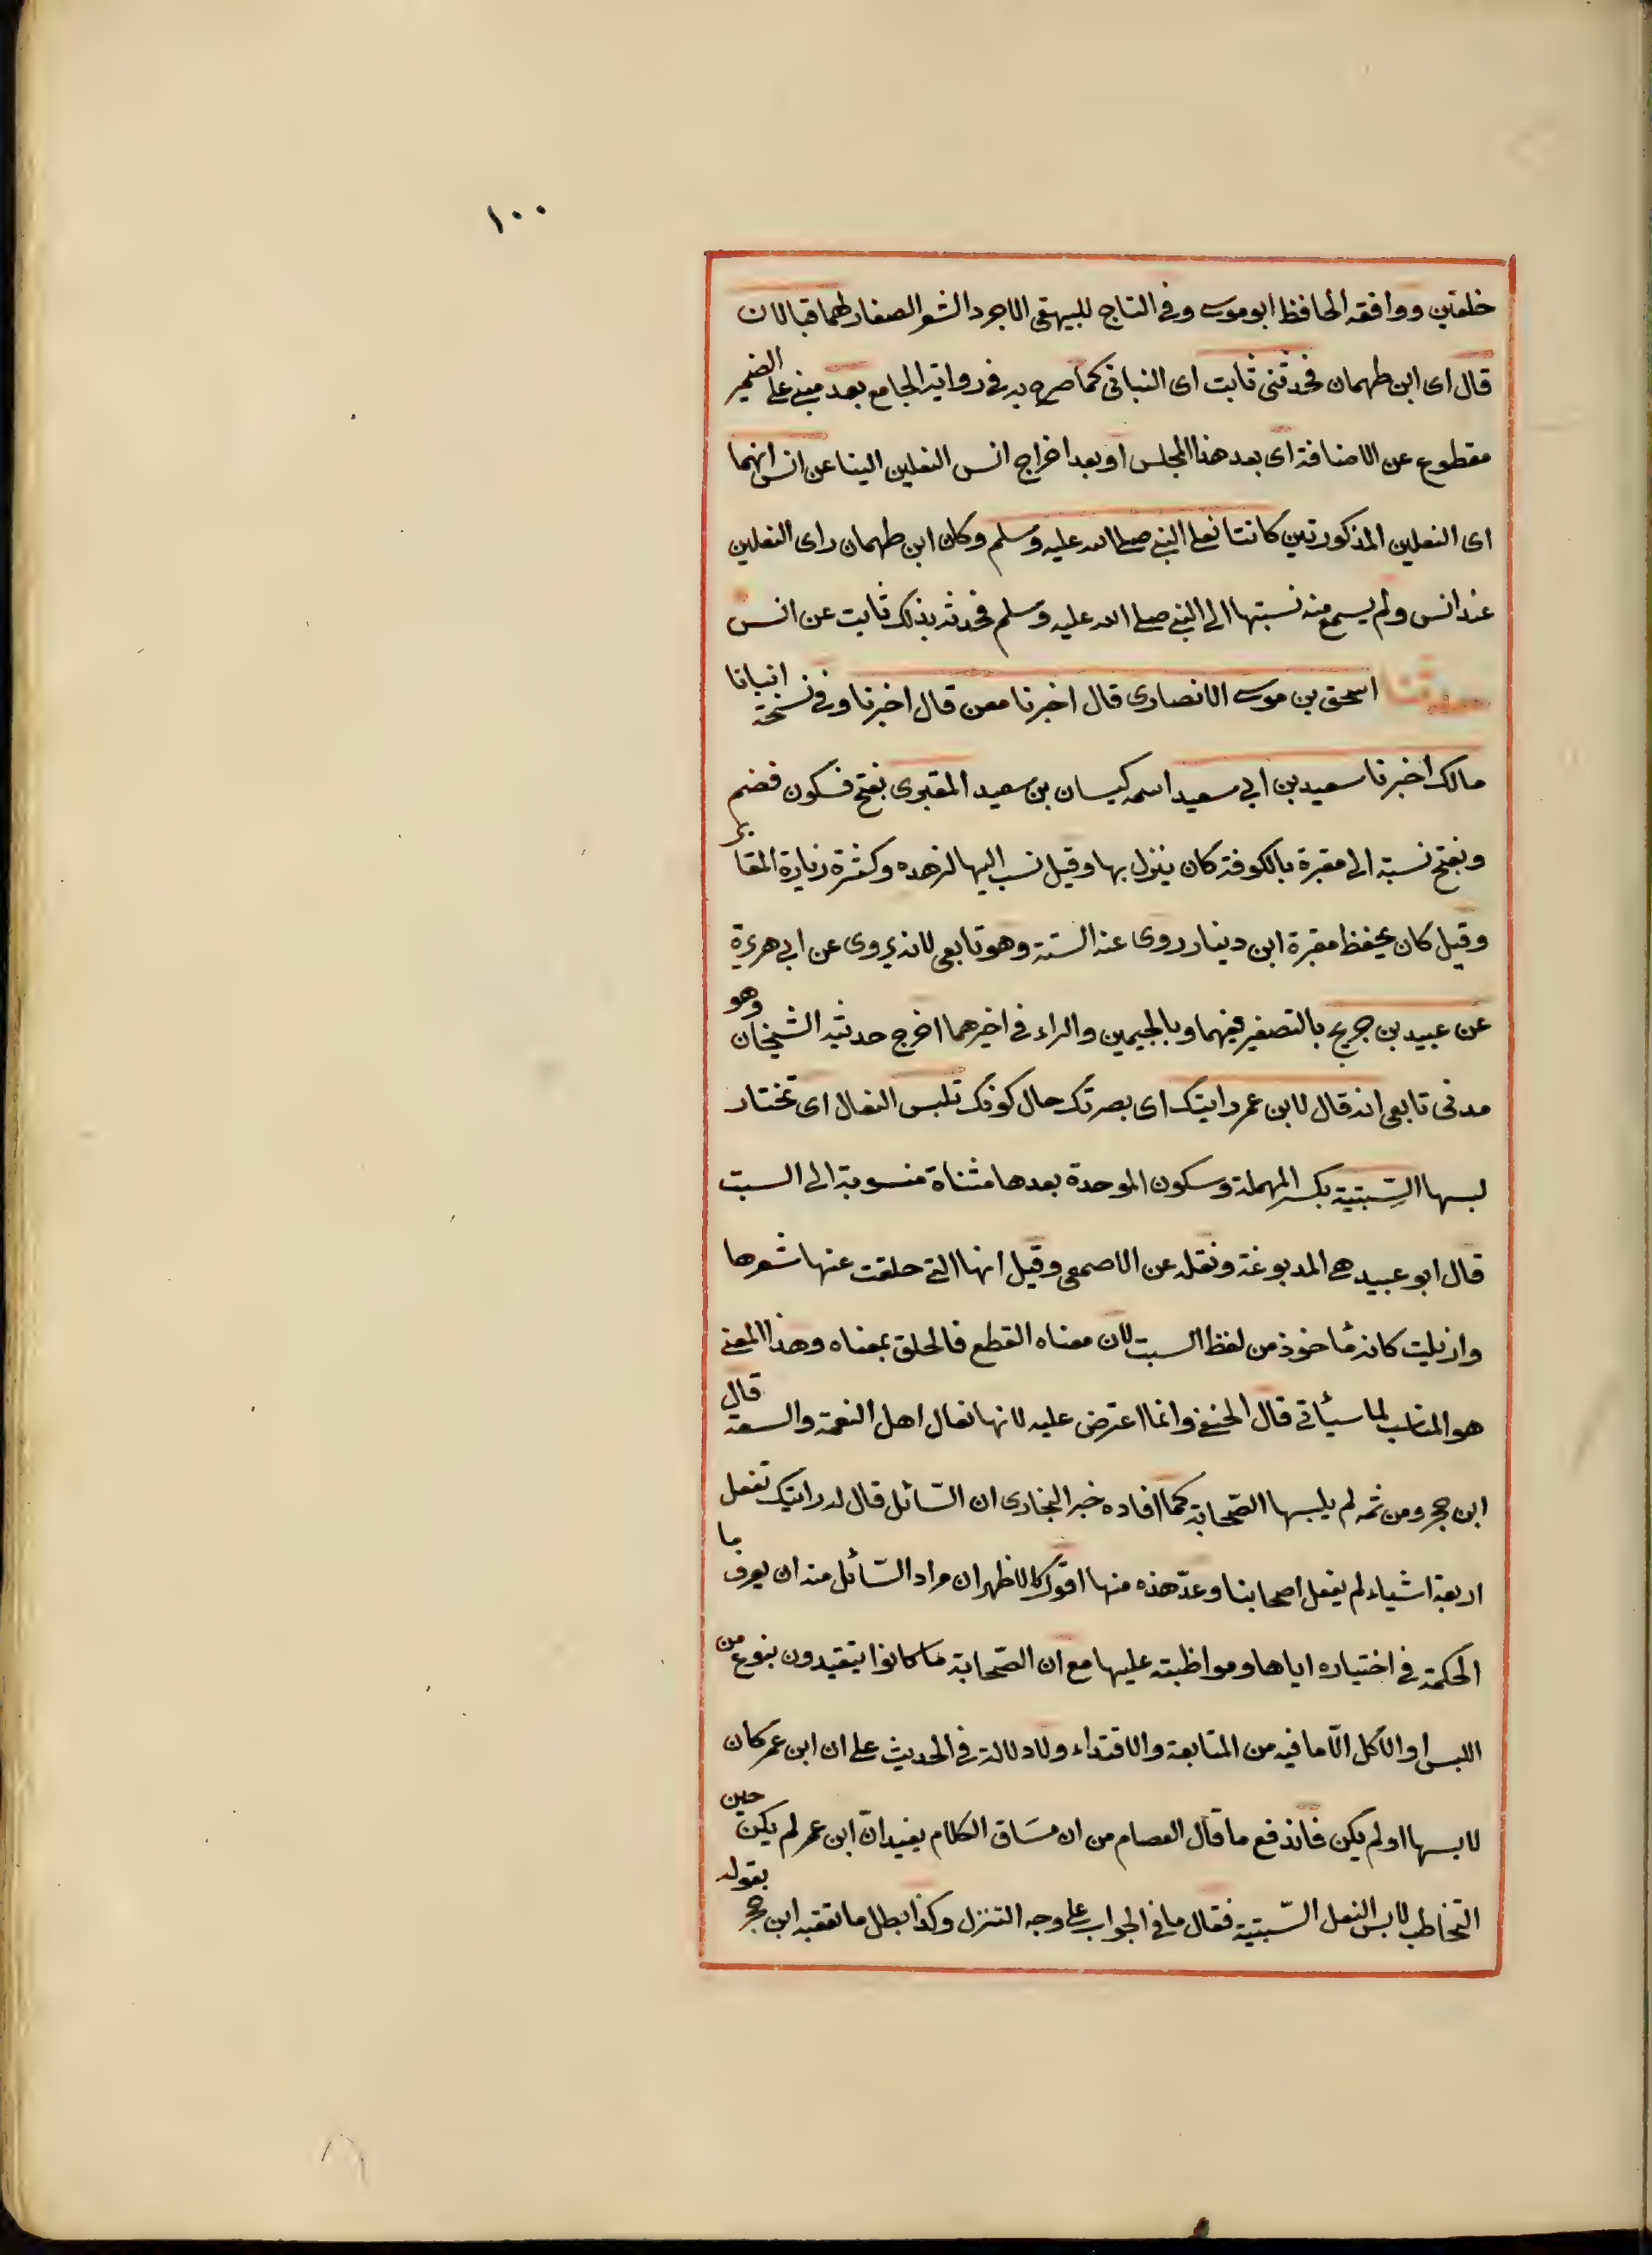 ١٠٠
خلقتين ووافقه الحافظ ابو موسى وفي التاج للبيهقي الاجرد الشعر الصغار لهما قبالان
قال اى ابن طهمان فحدثنى ثابت اى البنانى كما صرح به فى رواية الجامع بعد مبني على الضم
مقطوع عن الاضافة اى بعد هذا المجلس او بعد اخراج انس النعلين الينا عن انس انهما
اى النعلين المذكورتين كانتا نعلى النبي صلى الله عليه وسلم وكان ابن طهمان راى النعلين
عند انس ولم يسمع منه نسبتها الى النبي صلى الله عليه وسلم فحدثه بذلك ثابت عن انس
حدثنا اسحق بن موسى الانصارى قال اخبرنا معن قال اخبرنا وفى نسخة انبانا
مالك اخبرنا سعيد بن ابي سعيد اسمه كيسان بن سعيد المقبرى بفتح فسكون فضم
وبفتح نسبة الى مقبرة بالكوفة كان ينزل بها وقيل نسب اليها لزهده وكثرة زيارة المقابر
وقيل كان يحفظ مقبرة ابن دينار روى عنه الستة وهو تابعى لانه يروى عن ابي هريرة
عن عبيد بن جريج بالتصغير فيهما وبالجيمين والراء فى اخيرهما اخرج حديثه الشيخان وهو
مدنى تابعى انه قال لابن عمر رايتك اى بصرتك حال كونك تلبس النعال اى تختار
لبسها السِّبتية بكسر المهملة وسكون الموحدة بعدها مثناة منسوبة الى السبت
قال ابو عبيد هي المدبوغة ونقله عن الاصمعى وقيل انها التي حلقت عنها شعرها
وازيلت كانه مأخوذ من لفظ السبت لان معناه القطع فالحلق بمعناه وهذا المعنى
هو المناسب لما سيأتى قال الحنفي وانما اعترض عليه لانها نعال اهل النعمة والسعة قال
ابن حجر ومن ثمه لم يلبسها الصّحابة كما افاده خبر البخارى ان السّائل قال له رايتك تفعل
اربعة اشياء لم يفعل اصحابنا وعدّ هذه منها اقول الاظهر ان مراد السّائل منه ان يعرف ما
الحكمة فى اختياره اياها ومواظبته عليها مع ان الصّحابة ما كانوا يتقيدون بنوع من
اللبس او الاكل الّا ما فيه من المتابعة والاقتداء ولا دلالة فى الحديث على ان ابن عمر كان
لابسها او لم يكن فاندفع ما قال العصام من ان مسَاق الكلام يفيد انّ ابن عمر لم يكن حين
التخاطب لابس النعل السّبتية فقال ما فى الجواب على وجه التنزل وكذا بطل ما تعقبه ابن حجر بقوله